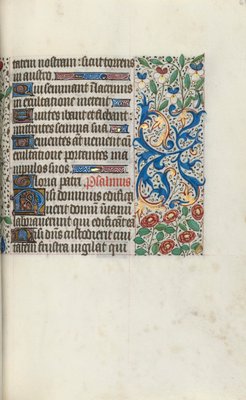 tatem nostram: sicut torrens
in austro.
Qui seminant i lacrimis
in exultatione metent.
Euntes ibant et flebant
mittentes semina sua
Venientes at venient cū
exultatione portantes ma
nipulos suos.
Gloria patri. Psalmus.
Nisi dominus edificaū
uerit domū vanū
laborauerunt qui edificāt eā
Nisi dn̄s custodierit ciui
tatem frustra uigilat qui